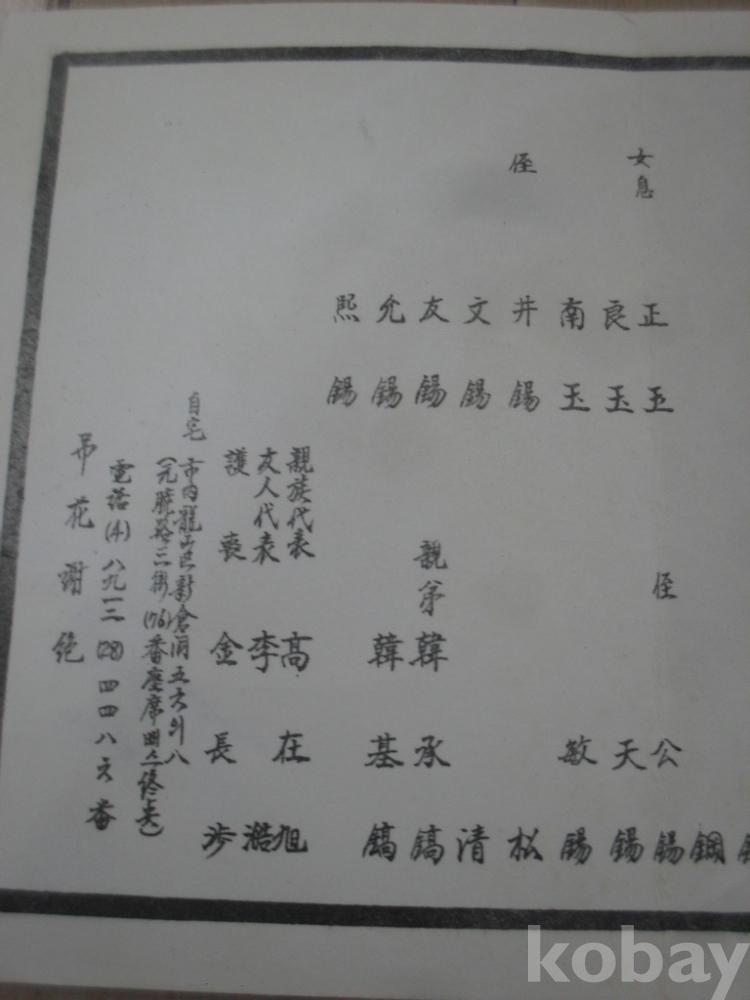 女息 正玉
良玉
南玉
侄 井錫
文錫
友錫
允錫
熙錫
鋼
侄 公錫
天錫
敏錫
松
清
親弟 韓承鎬
韓基鎬
親族代表 高在旭
友人代表 李澔
護喪 金長涉
自宅 市内龍山区新倉洞五六의八
(元曉路三街(76)番座席뻐스終点)
電話(4)八九一二(28)四四八六番
吊花謝絶
kobay